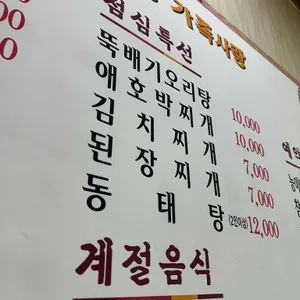 가족사랑
점심특선
뚝배기오리탕 10,000
애호박찌개 10,000
김치찌개 7,000
된장찌개 7,000
동태탕 (2인이상) 12,000
계절음식